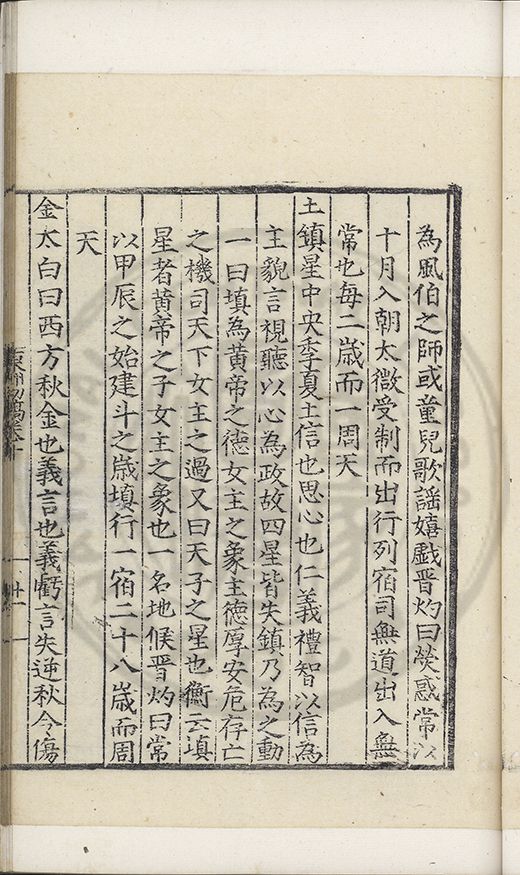 為風伯之師或童兒歌謡嬉戯晋灼曰熒惑常以
十月入朝太微受制而出行列宿司無道出入無
常也每二歳而一周天
土鎮星中央季夏土信也思心也仁義禮智以信為
主貌言視聽以心為政故四星皆失鎮乃為之動
一曰填為黄帝之徳女主之象主徳厚安危存亡
之機司天下女主之過又曰天子之星也衡云填
星者黄帝之子女主之象也一名地候晋灼曰常
以甲辰之始建斗之歳填行一宿二十八歳而周
天
金太白曰西方秋金也義言也義虧言失逆秋令傷